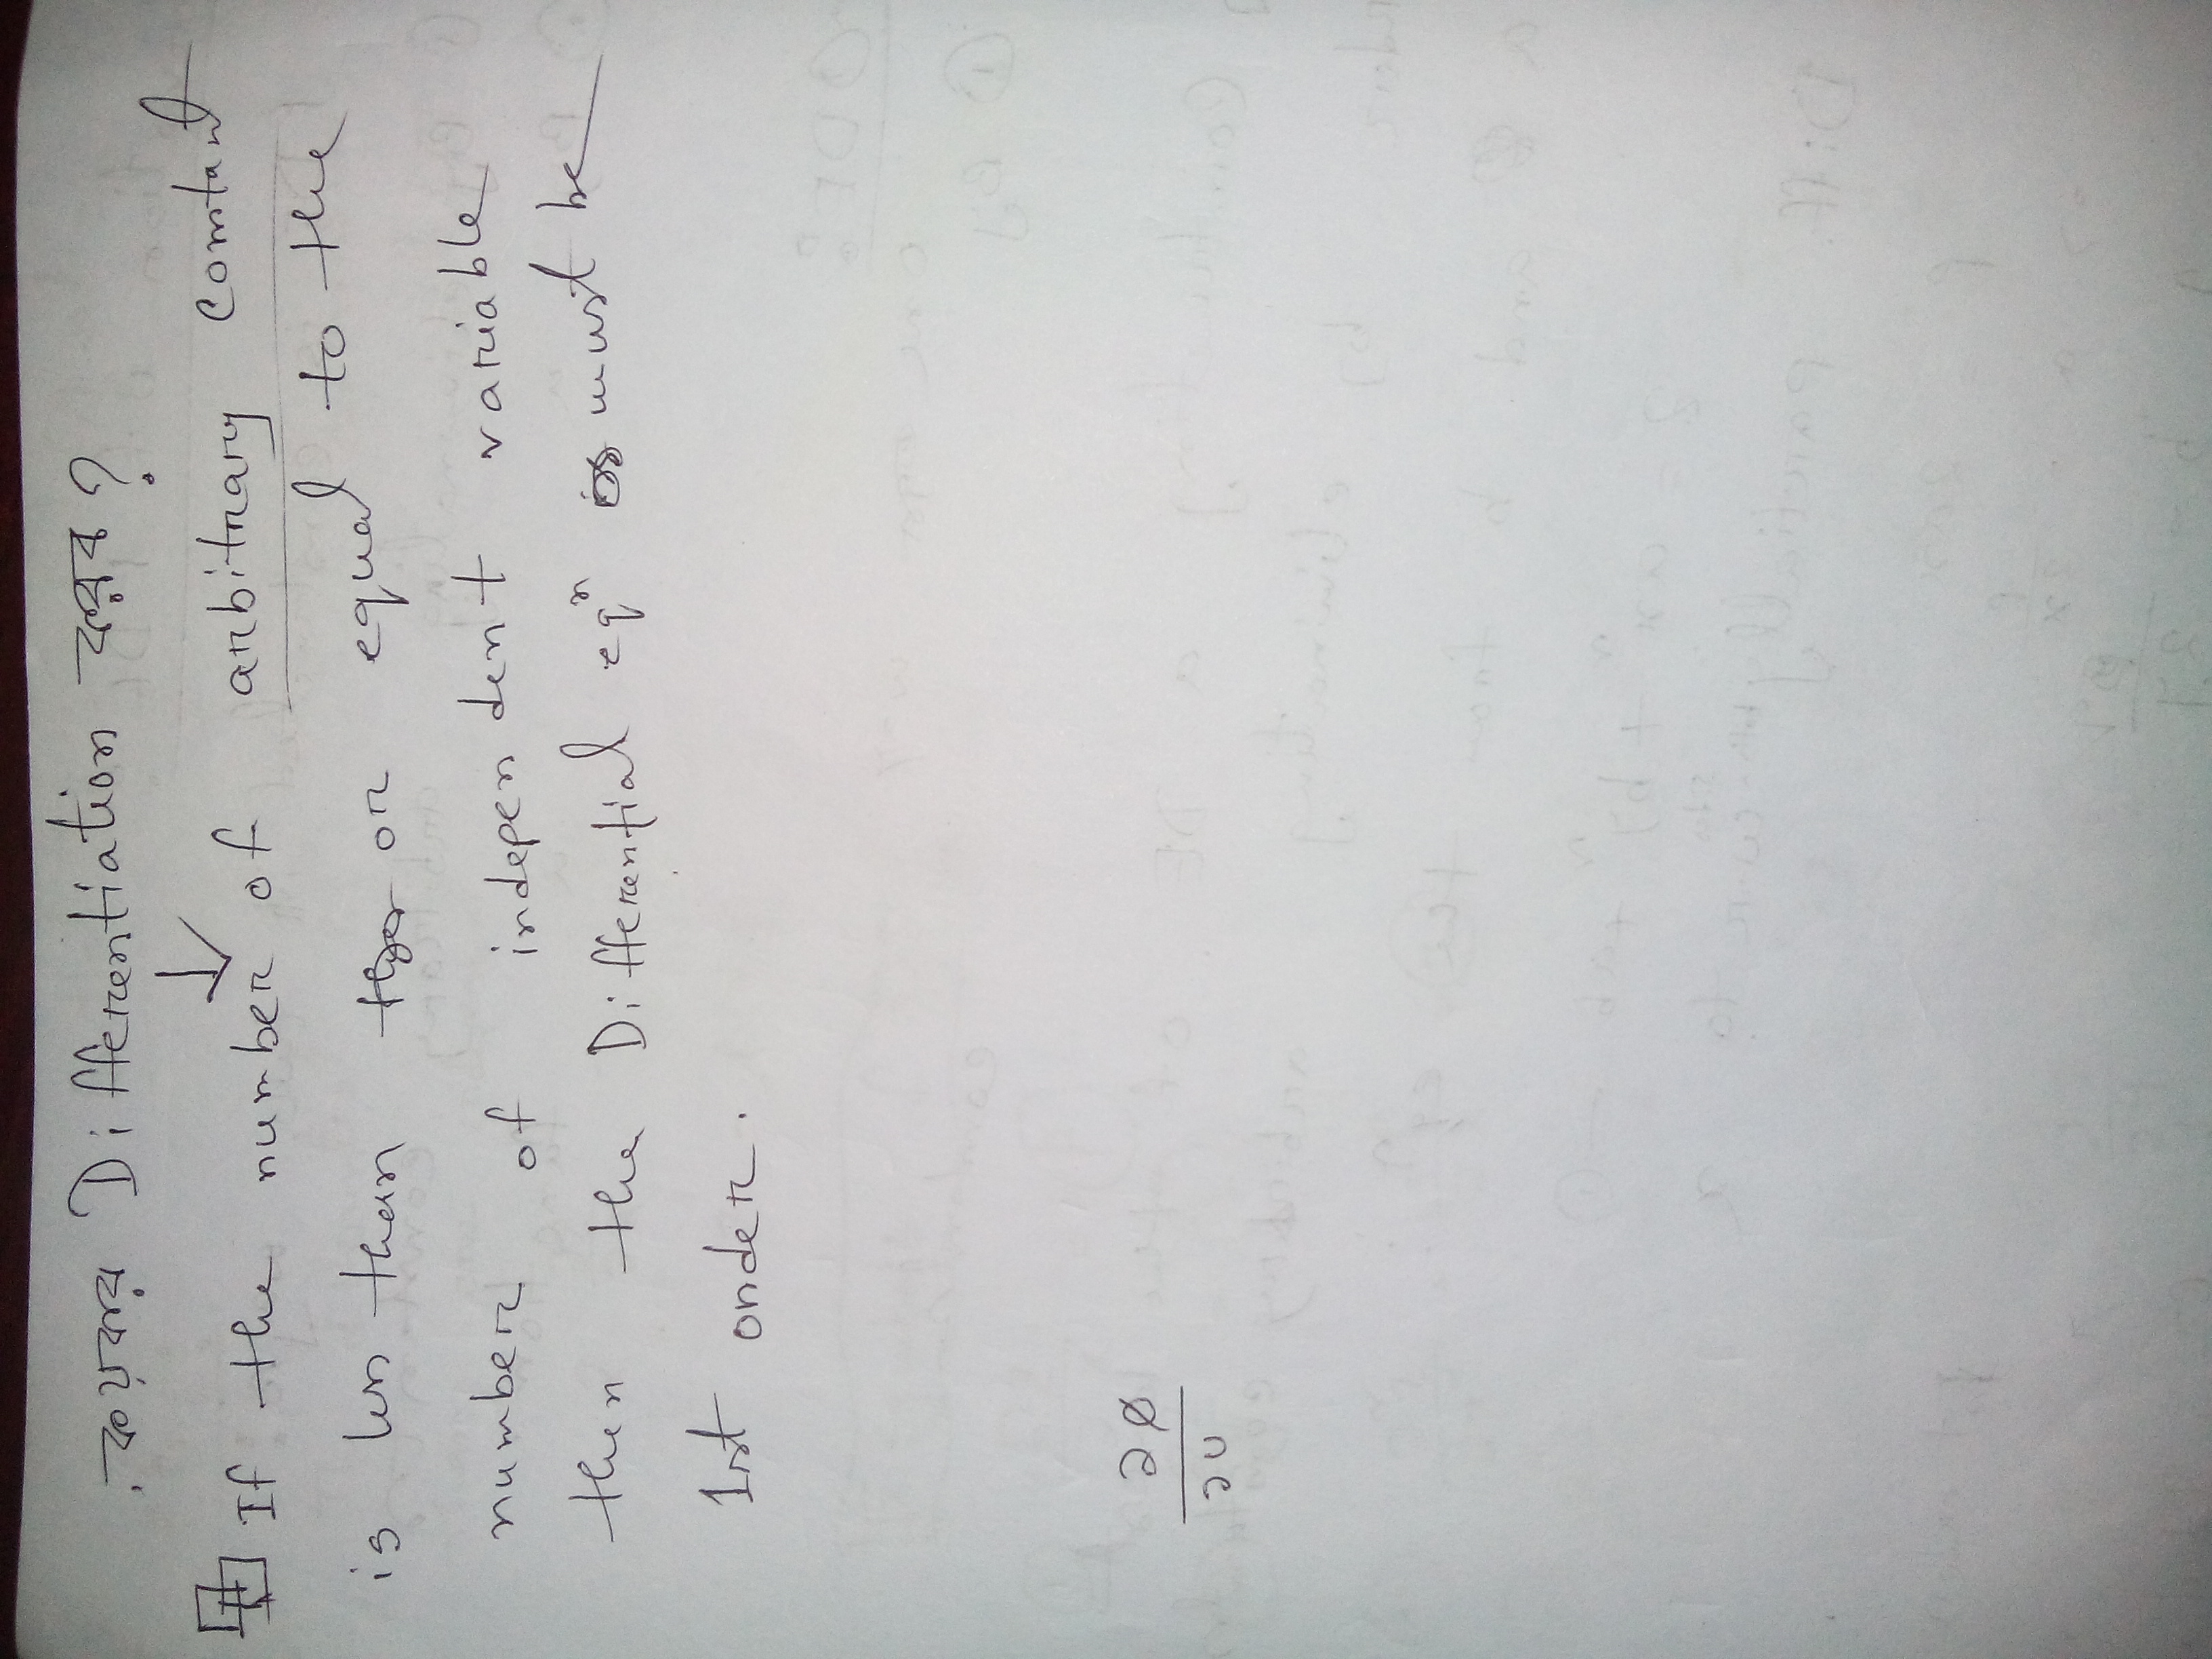 কতবার Differentiation করব?
# If the number of arbitrary constant
is less than or equal to the
number of independent variable
then the Differential eqⁿ must be
1st order.
∂φ
∂u